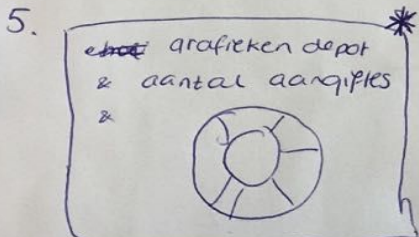 5.
grafieken depot
& aantal aangiftes
&